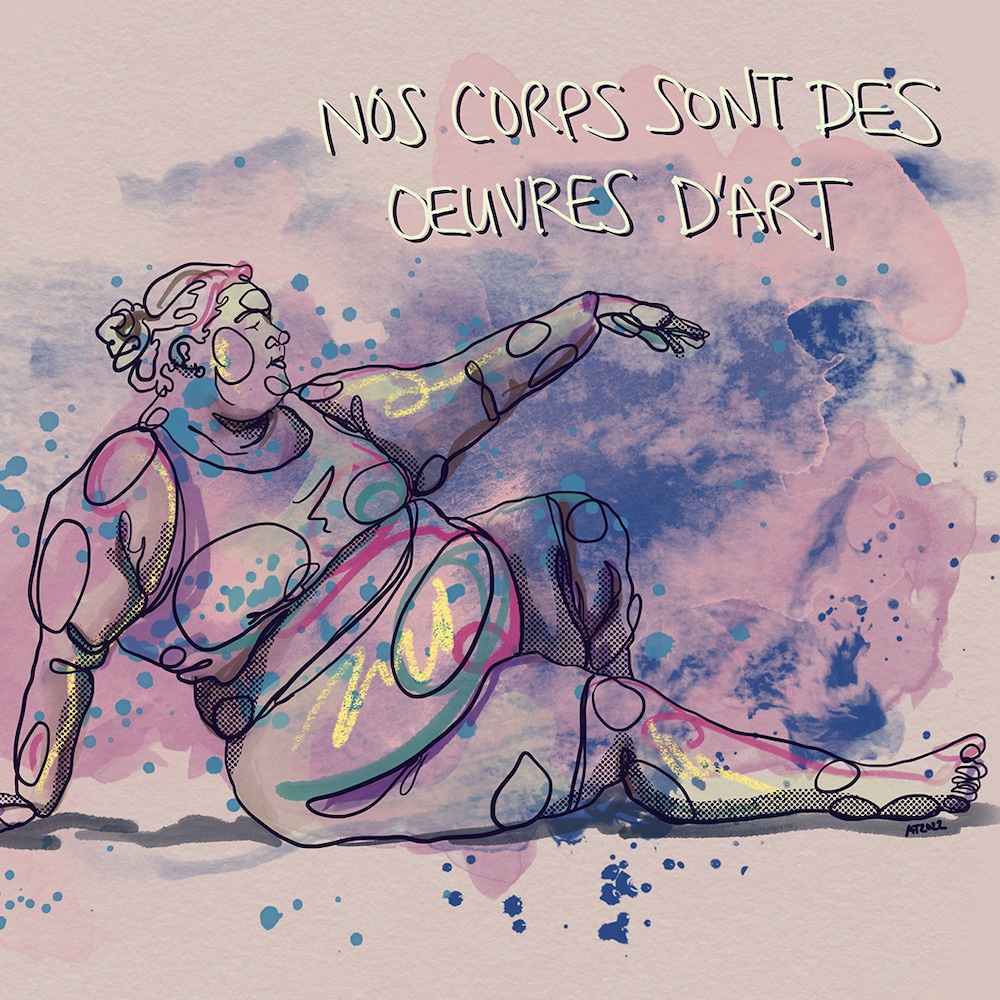 NOS CORPS SONT DES
OEUVRES D'ART
AT2022